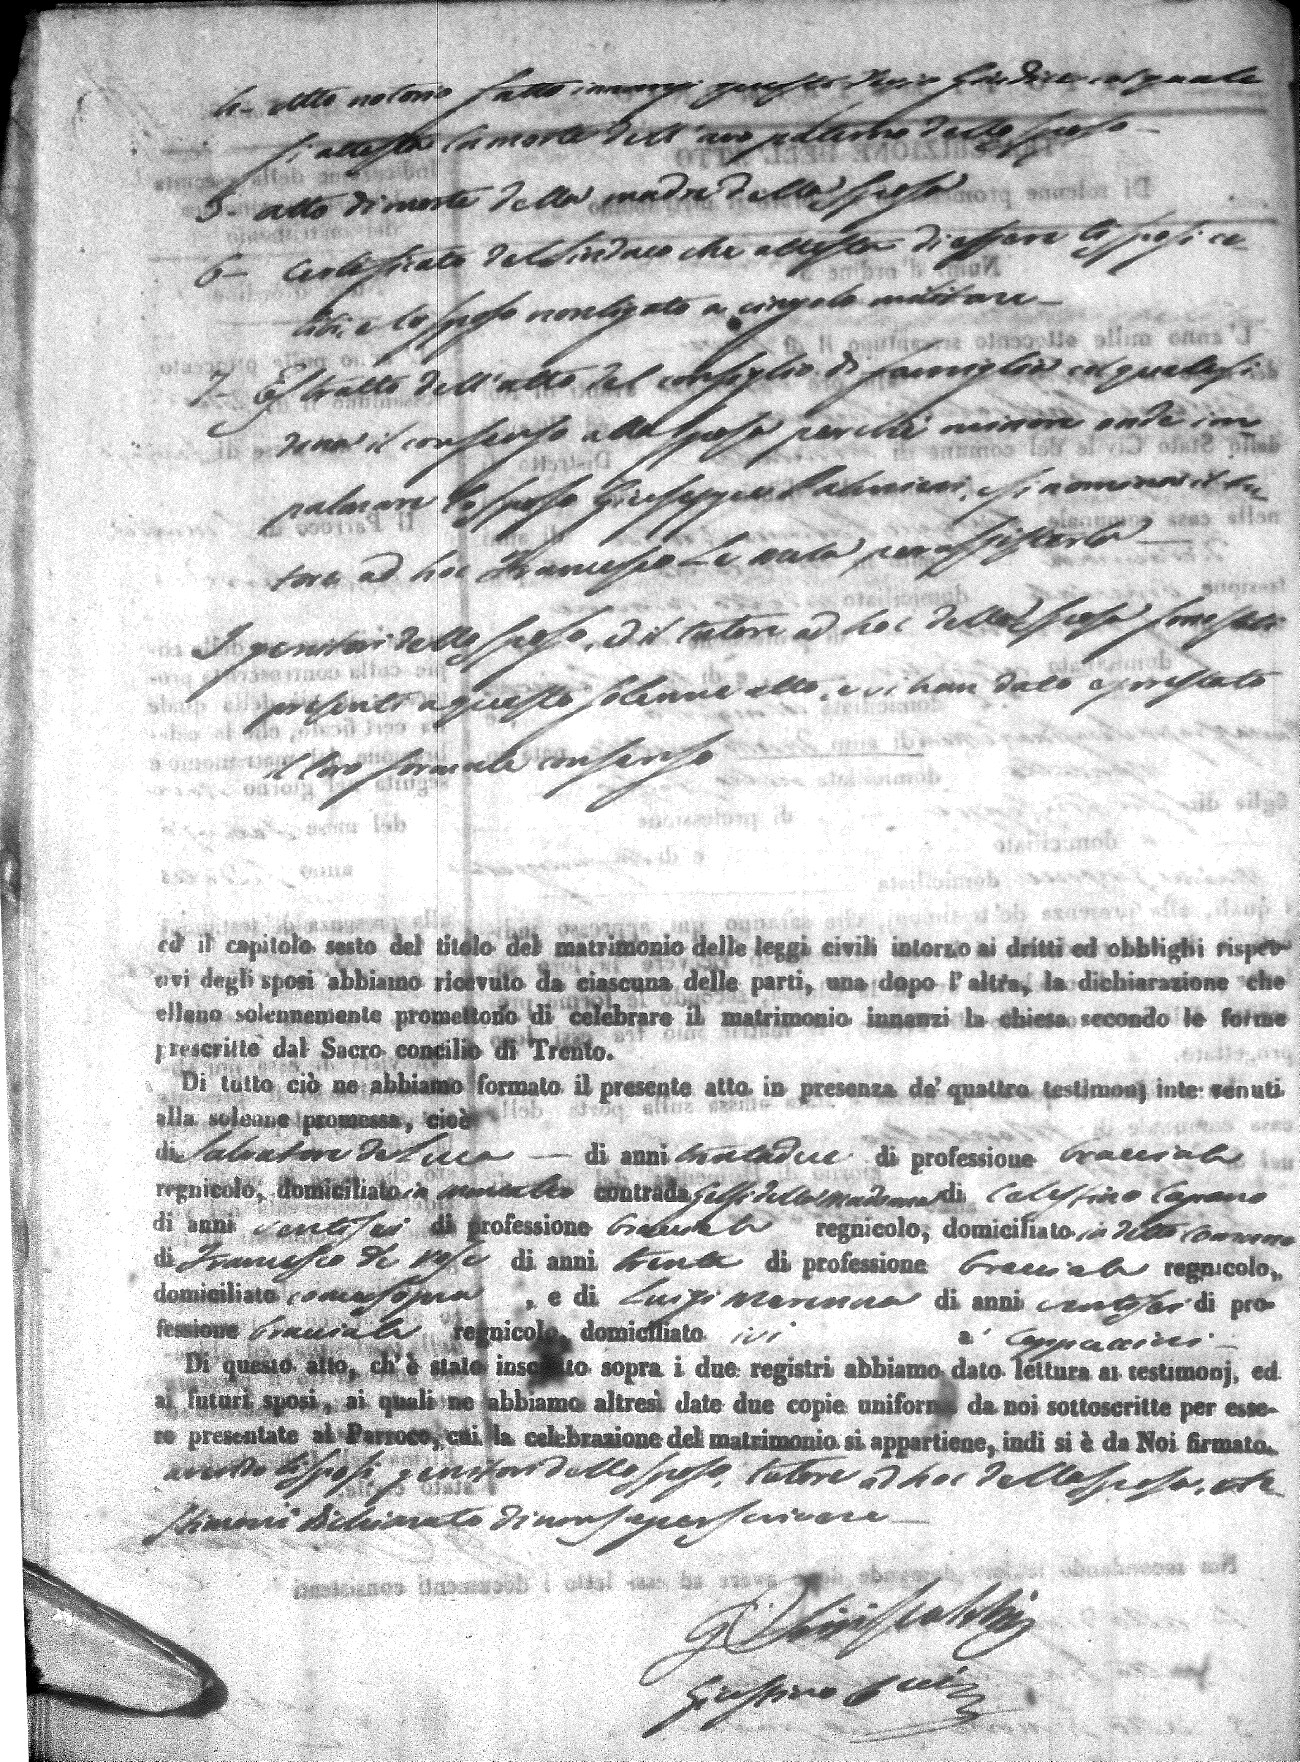 4- Atto notorio fatto innanzi questo Regio Giudice col quale
si attesta la morte dell'avo paterno dello sposo -
5- atto di morte della madre della sposa
6- Certificato del Sindaco che attesta di essere li sposi ce
libi, e lo sposo non ligato a cingolo militare -
7- Estratto dell'atto del consiglio di famiglia col quale si
dona il consenso alla sposa perché minore onde im
palmare lo sposo Giuseppe Palmieri, e si nomina il tu
tore ad hoc Francesco per assisterla -
I genitori dello sposo, ed il tutore ad hoc della sposa
presenti a questo solenne atto, e vi han dato e prestato
il loro formale consenso
ed il capitolo sesto del titolo del matrimonio delle leggi civili intorno ai dritti ed obblighi rispet-
tivi degli sposi abbiamo ricevuto da ciascuna delle parti, una dopo l'altra, la dichiarazione che
ellano solennemente promettono di celebrare il matrimonio innanzi la chiesa secondo le forme
prescritte dal Sacro concilio di Trento.
Di tutto ciò ne abbiamo formato il presente atto in presenza de' quattro testimonj inte venuti
alla solenne promessa, cioè
di Salvatore de Luca - di anni trentadue di professione bracciale
regnicolo, domiciliato in contrada della Madonna di Celestino
di anni ventisei di professione bracciale regnicolo, domiciliato in detto comune
di Francesco di anni trenta di professione bracciale regnicolo,
domiciliato come sopra, e di Luigi di anni ventisei di pro-
fessione bracciale regnicolo, domiciliato ivi a' Cappuccini -
Di questo atto, ch'è stato inscritto sopra i due registri abbiamo dato lettura ai testimonj, ed
ai futuri sposi, ai quali ne abbiamo altresì date due copie uniformi da noi sottoscritte per esse-
re presentate al Parroco, cui la celebrazione del matrimonio si appartiene, indi si è da Noi firmato.
avendo li sposi, genitori dello sposo, tutore ad hoc della sposa, e te
stimoni dichiarato di non saper scrivere -